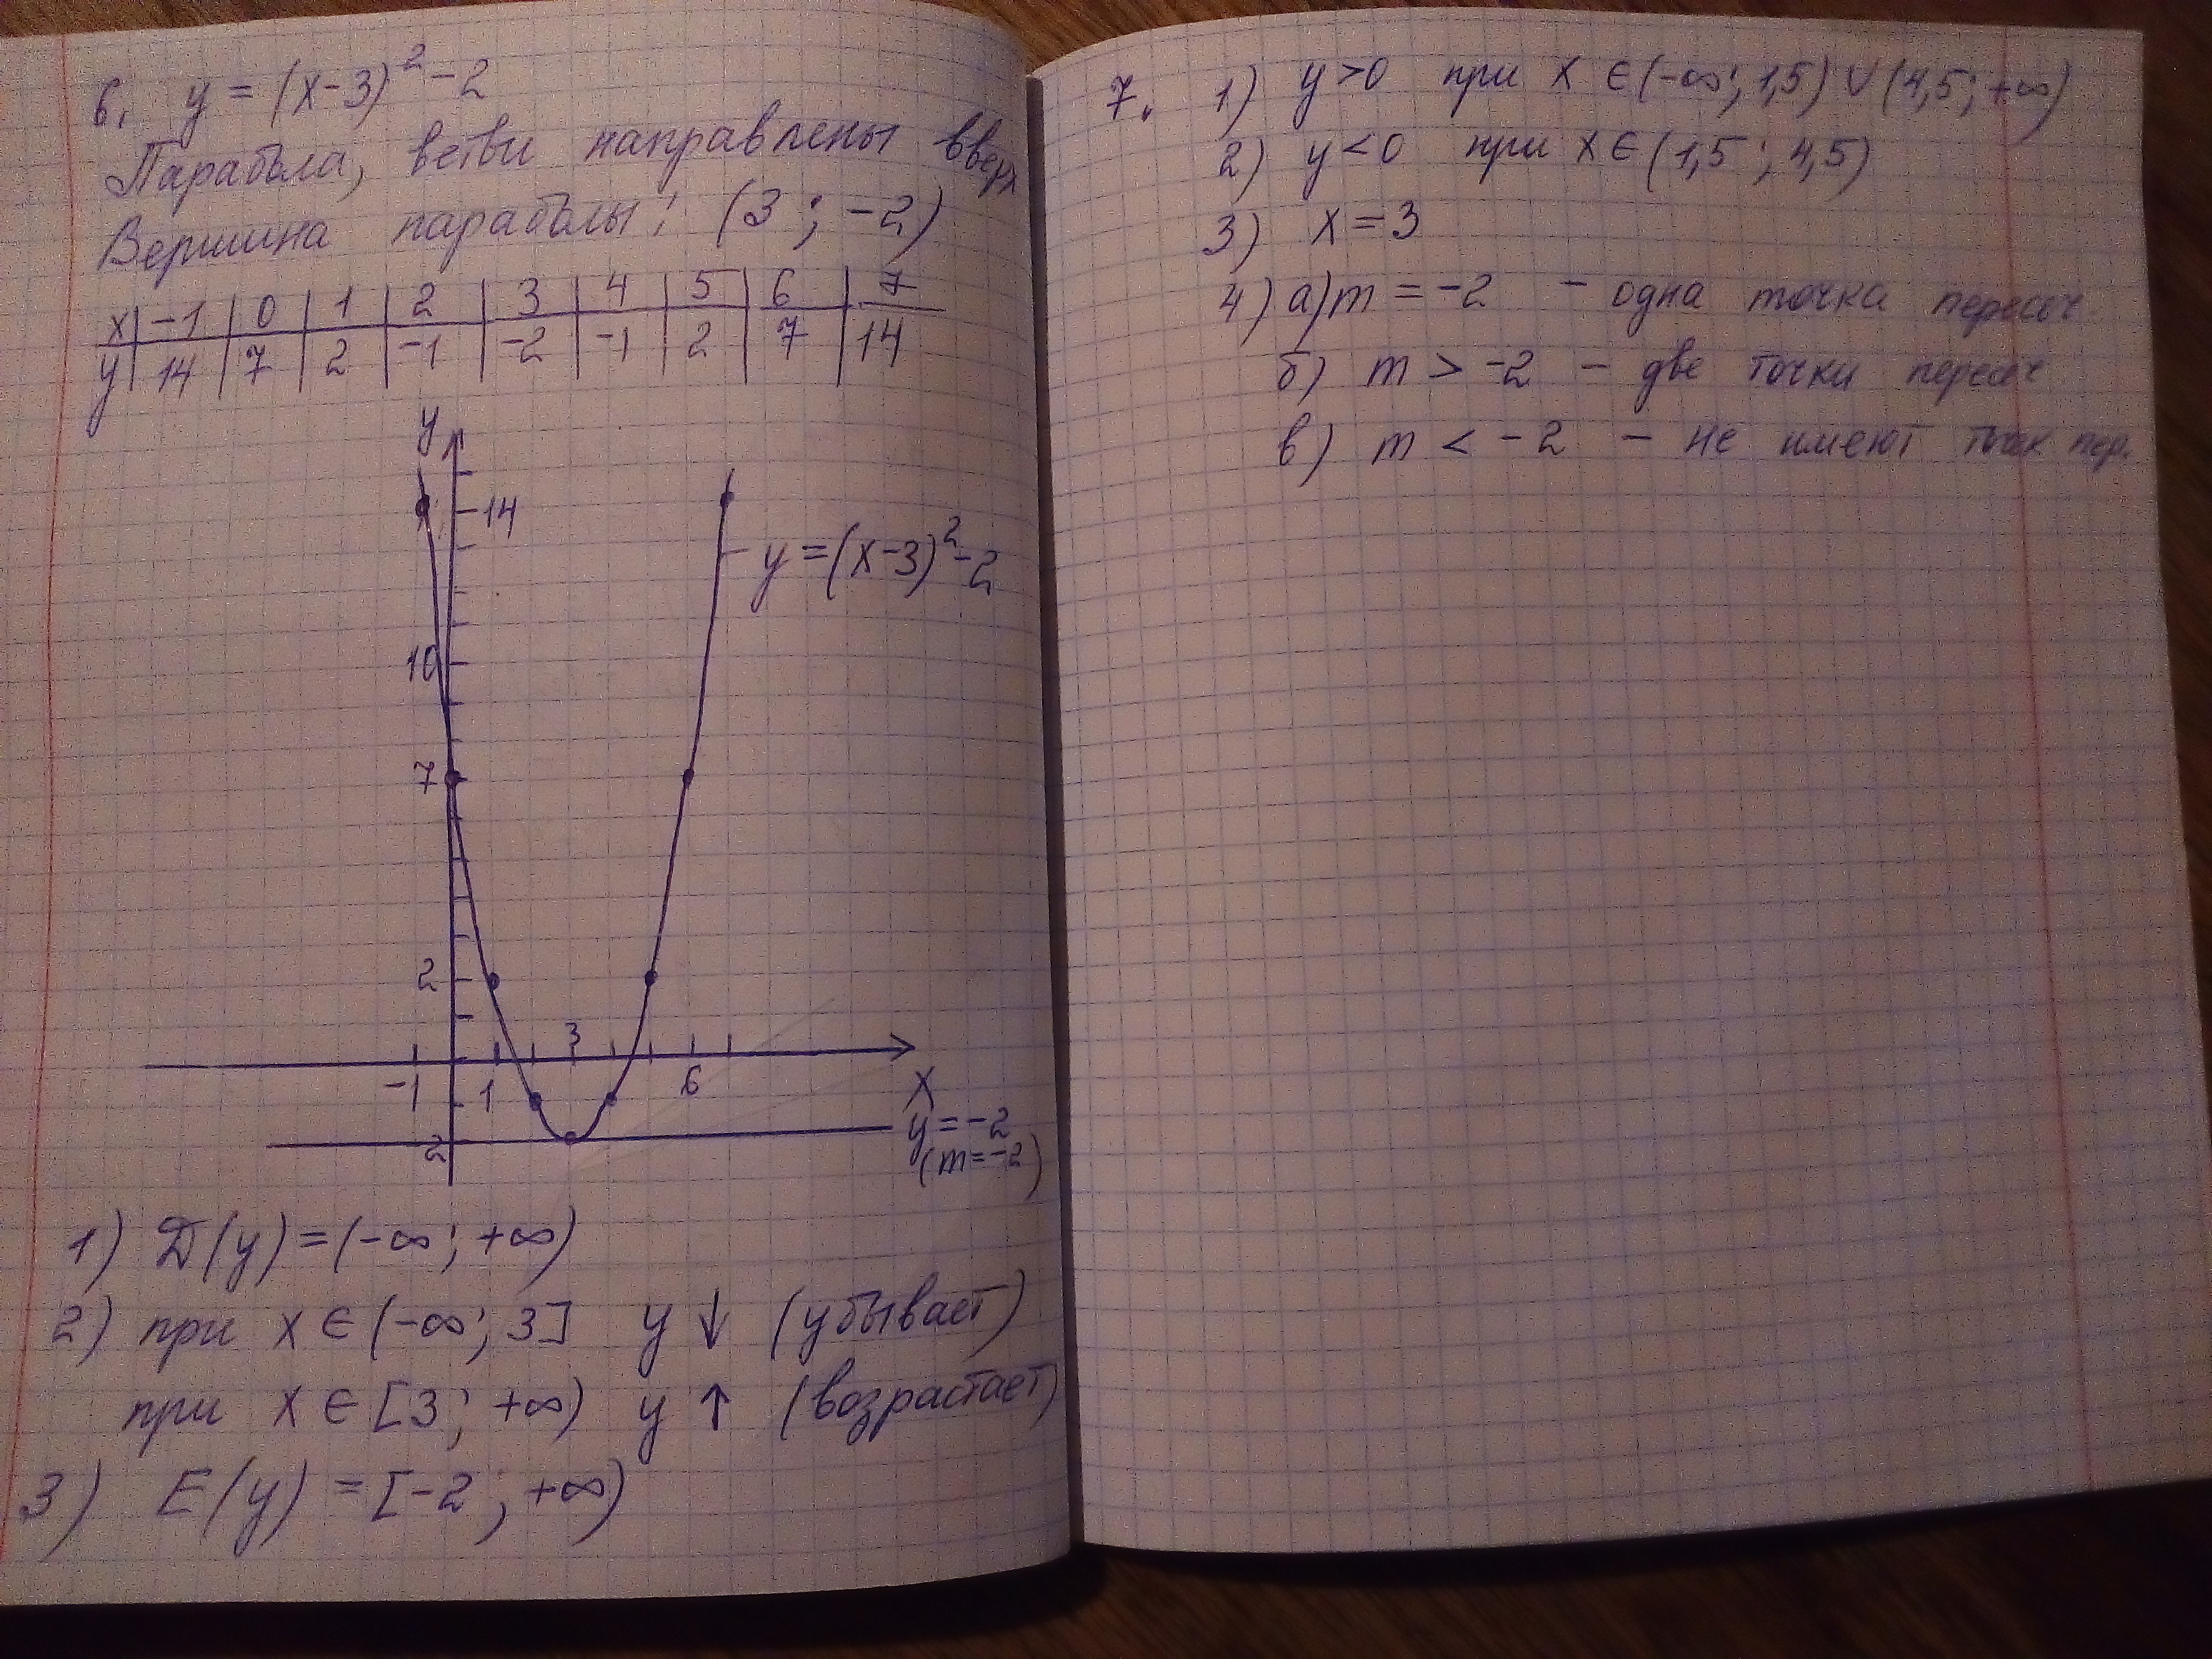 6. y = (x-3)² - 2
Парабола, ветви направлены вверх
Вершина параболы: (3 ; -2)
x | -1 | 0 | 1 | 2 | 3 | 4 | 5 | 6 | 7
y | 14 | 7 | 2 | -1 | -2 | -1 | 2 | 7 | 14
y
14
y = (x-3)² - 2
10
7
2
3
-1 1 6 x
y = -2
2
(m = -2)
1) D(y) = (-∞; +∞)
2) при x ∈ (-∞; 3] y ↓ (убывает)
при x ∈ [3; +∞) y ↑ (возрастает)
3) E(y) = [-2; +∞)
7. 1) y > 0 при x ∈ (-∞; 1,5) ∪ (4,5; +∞)
2) y < 0 при x ∈ (1,5; 4,5)
3) x = 3
4) а) m = -2 - одна точка пересеч.
б) m > -2 - две точки пересеч
в) m < -2 - не имеют точек пер.